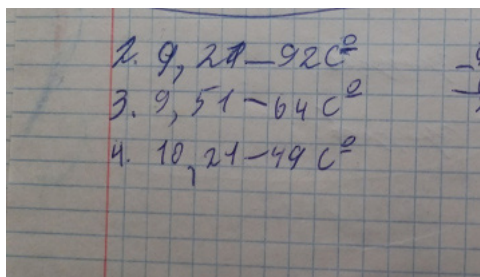 2. 9,21-92C°
3. 9,51-64C°
4. 10,21-49C°